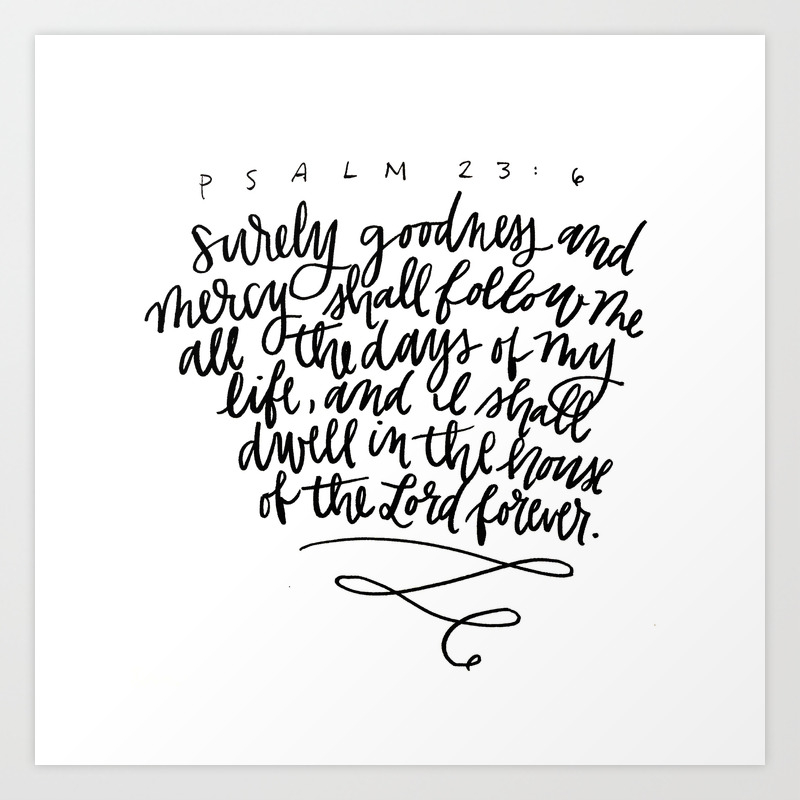 PSALM 23:6
surely goodness and
mercy shall follow me
all the days of my
life, and i shall
dwell in the house
of the Lord forever.